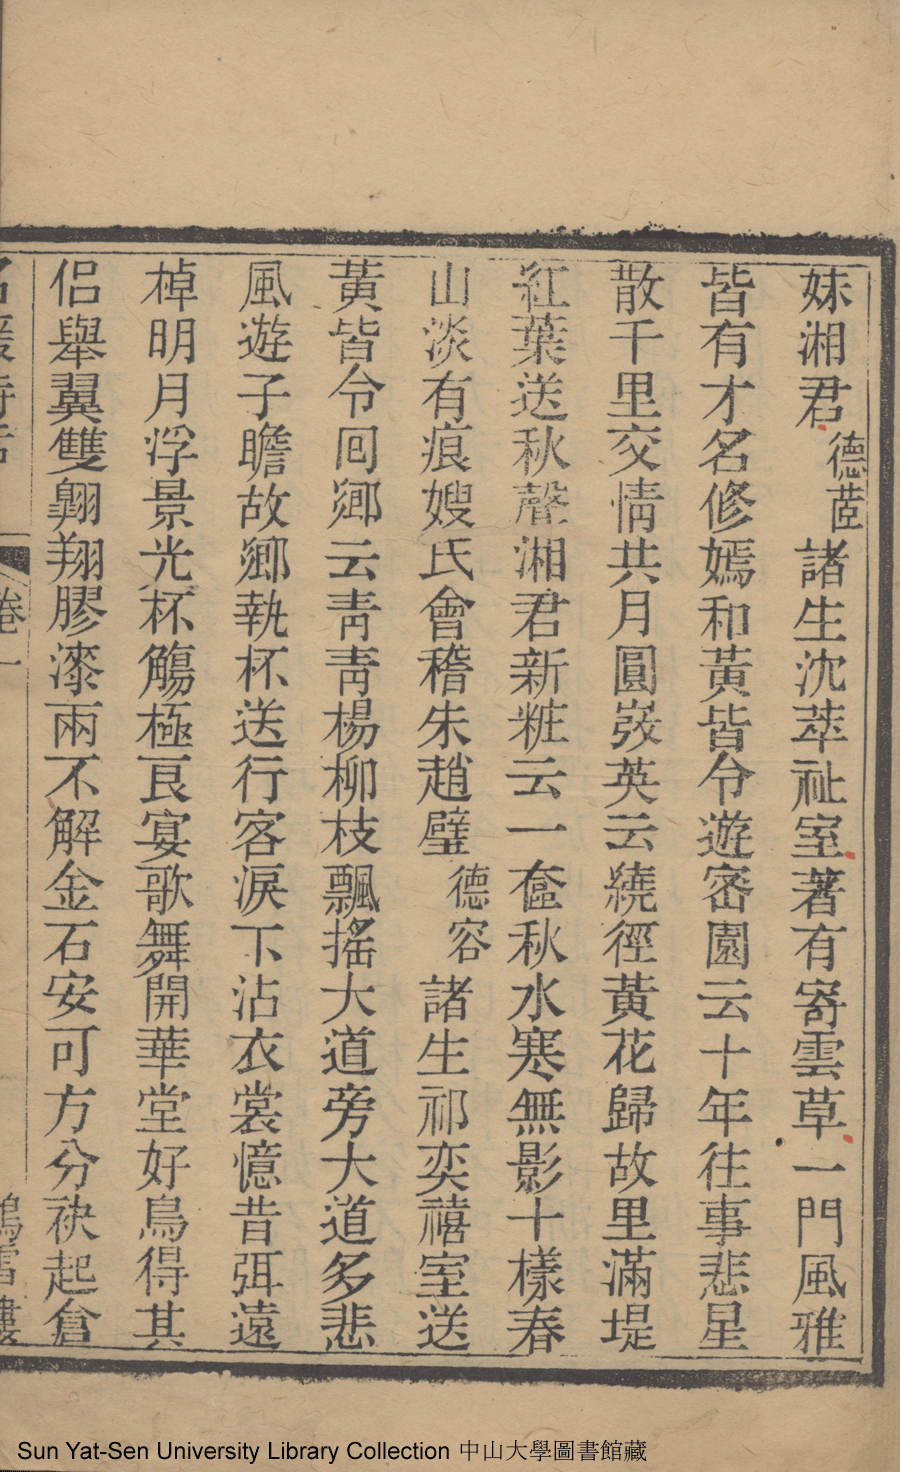 妹湘君德茝諸生沈萃祉室著有寄雲草一門風雅
皆有才名修嫣和黃皆令遊密園云十年往事悲星
散千里交情共月圓弢英云繞徑黃花歸故里滿堤
紅葉送秋聲湘君新粧云一奩秋水寒無影十樣春
山淡有痕嫂氏會稽朱趙璧德容諸生祁奕禧室送
黃皆令囘鄉云靑靑楊柳枝飄搖大道旁大道多悲
風遊子瞻故鄉執杯送行客淚下沾衣裳憶昔弭遠
棹明月浮景光杯觴極良宴歌舞開華堂好鳥得其
侶舉翼雙翺翔膠漆兩不解金石安可方分袂起倉
名媛詩話
卷一
鴻雪樓
Sun Yat-Sen University Library Collection 中山大學圖書館藏